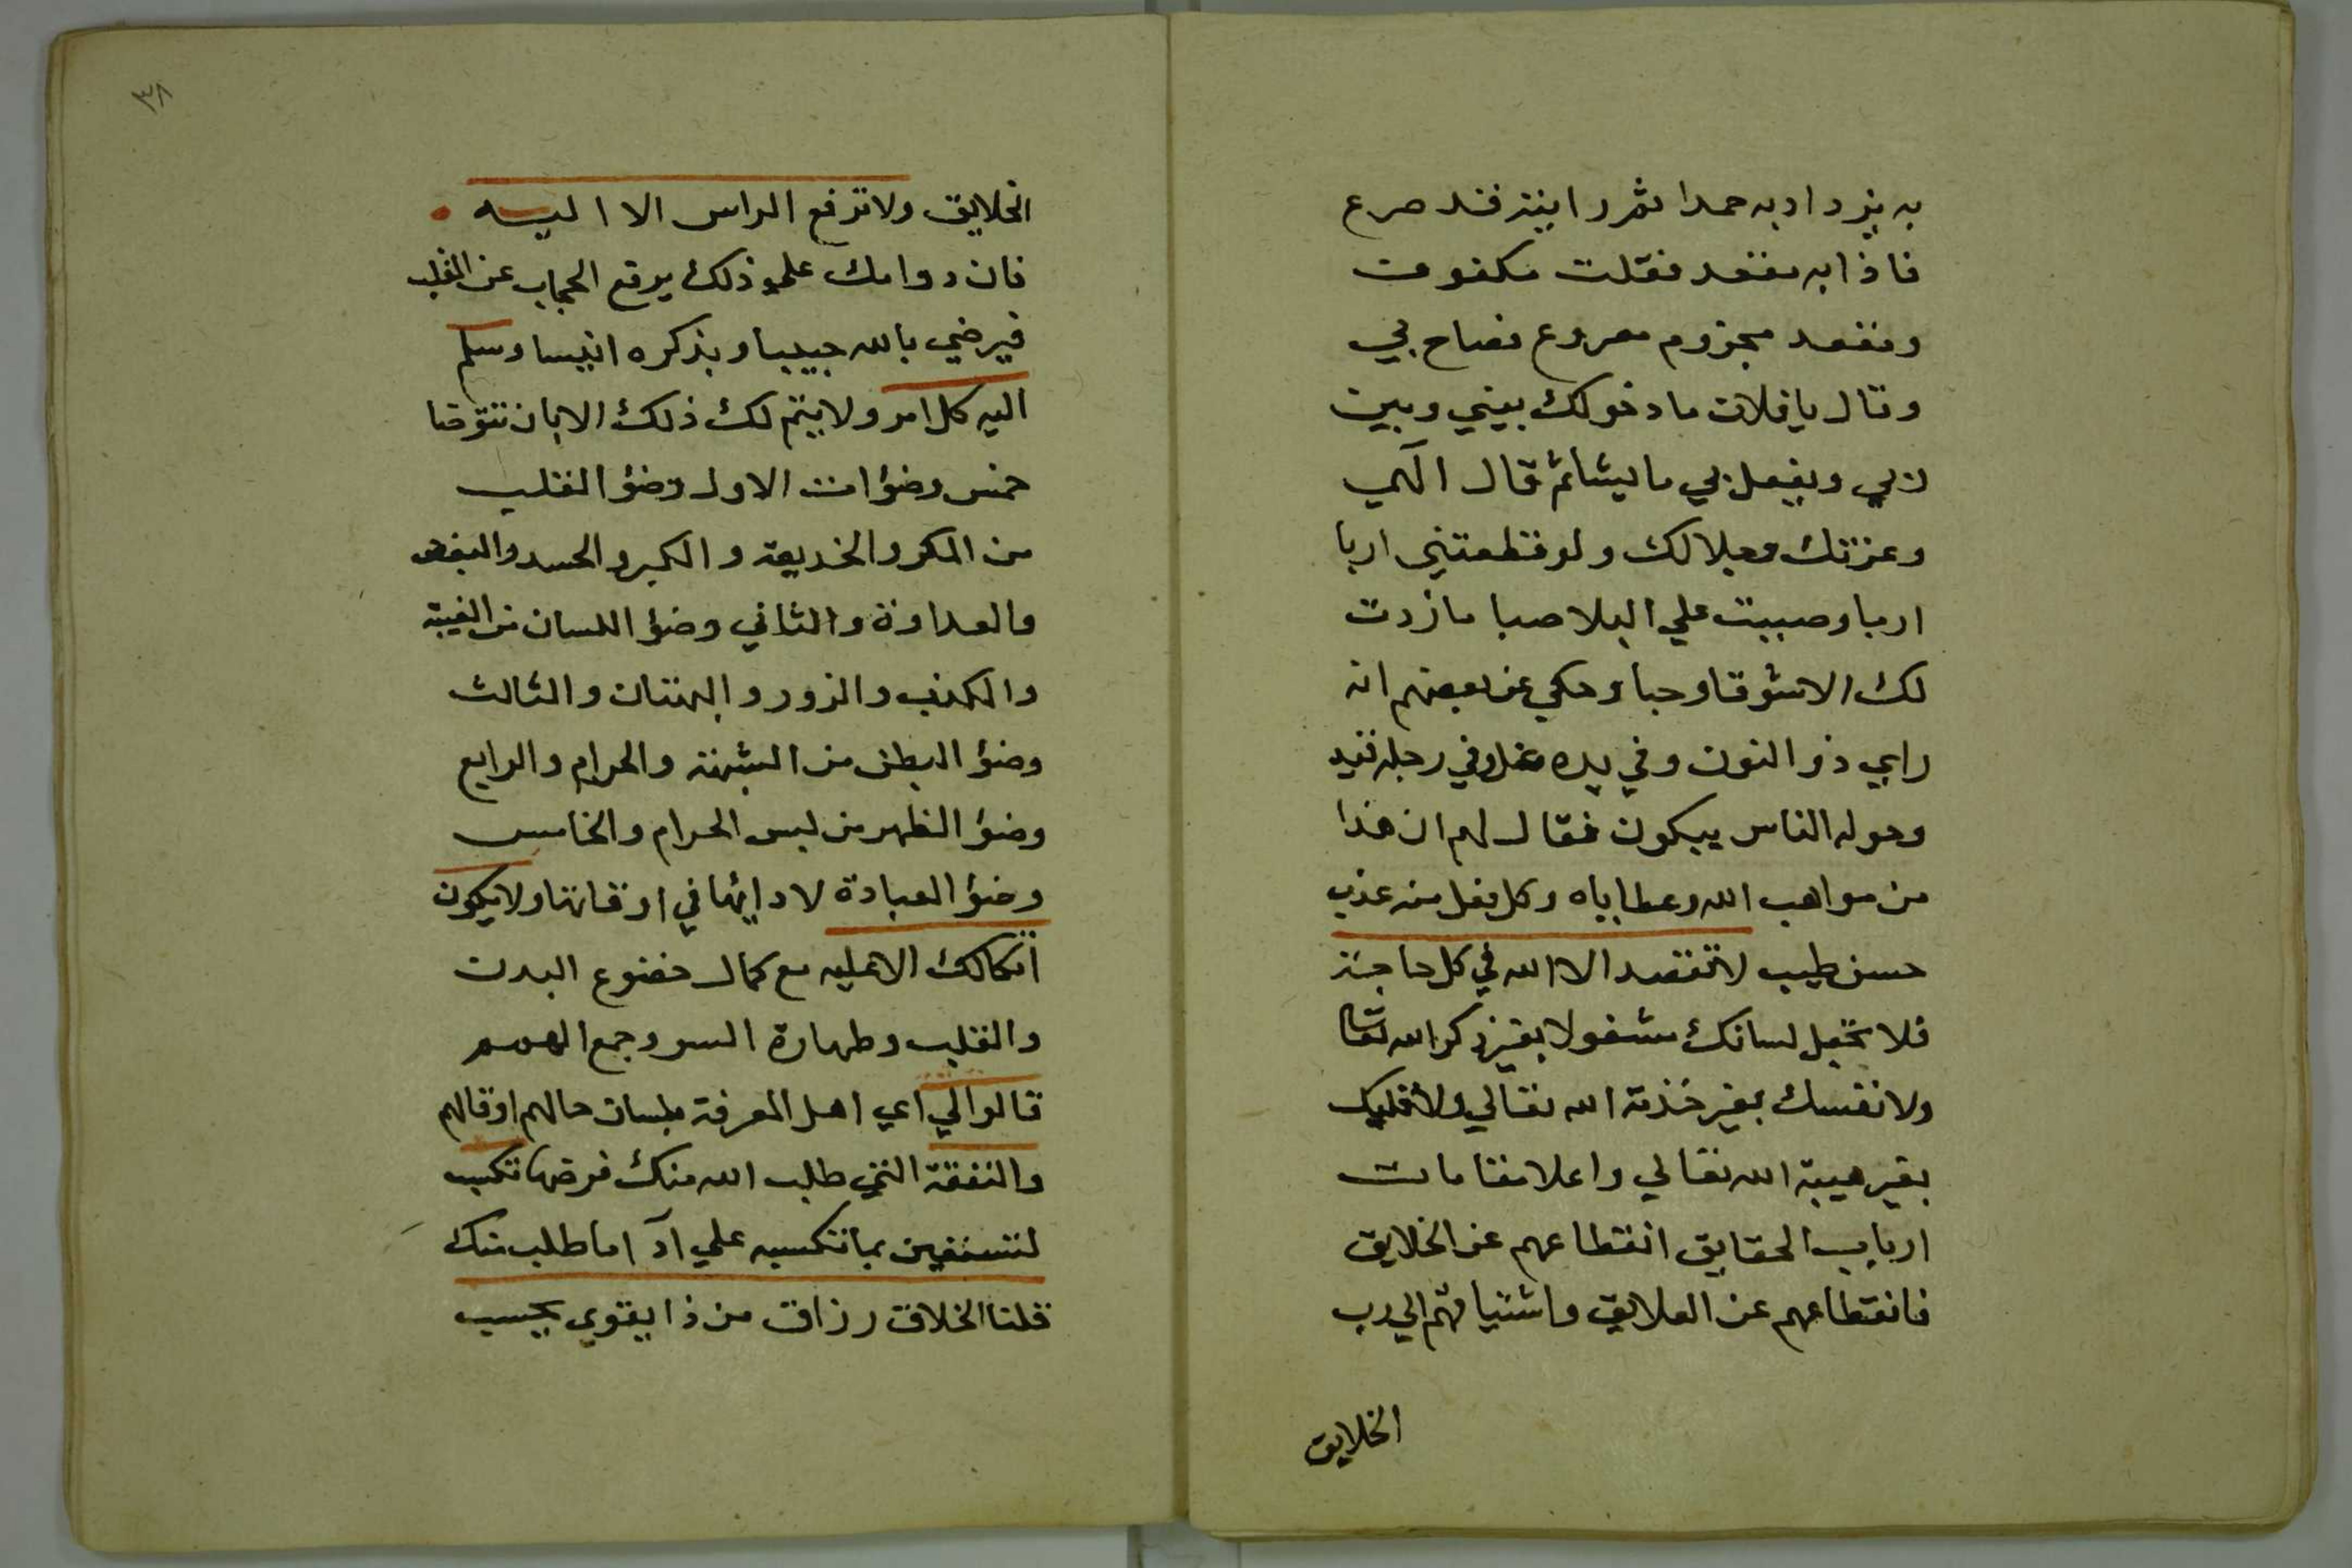 به يزداد به حمدا ثم رايته قد صرع
فاذا به مقعد فقلت مكفوف
ومقعد مجزوم مصروع فصاح بي
وقال يا فلان ما دخولك بيني وبين
ربي ويفعل بي ما يشا ثم قال الهي
وعزتك وجلالك ولو قطعتني اربا
اربا وصببت علي البلا صبا ما زدت
لك الا شوقا وحبا وحكي عن بعضهم انه
راي ذو النون وفي يده غل وفي رجله قيد
وحوله الناس يبكون فقال لهم ان هذا
من مواهب الله وعطاياه وكل فعل منه عذب
حسن طيب لا تقصد الا الله في كل حاجة
فلا تجعل لسانك مشغولا بغير ذكر الله تعالى
ولا نفسك بغير خدمة الله تعالي ولا قلبك
بغير هيبة الله تعالي واعلا مقامات
ارباب الحقايق انقطاعهم عن الخلايق
فانقطاعهم عن العلايق واشتياقهم الي رب
الخلايق
٣٨
الخلايق ولا ترفع الراس الا اليه
فان دوامك علي ذلك يرفع الحجاب عن القلب
فيرضي بالله حبيبا وبذكره انيسا وسلم
اليه كل امر ولا يتم لك ذلك الا بان تتوضا
خمس وضوات الاول وضؤ القلب
من المكر والخديعة والكبر والحسد والبغض
والعداوة والثاني وضؤ اللسان من الغيبة
والكذب والزور والبهتان والثالث
وضؤ البطن من الشبهة والحرام والرابع
وضؤ الظهر من لبس الحرام والخامس
وضؤ العبادة لادايها في اوقاتها ولا يكون
اتكالك الا عليه مع كمال خضوع البدن
والقلب وطهارة السر وجمع الهمم
قالوا لي اي اهل المعرفة بلسان حالهم او قالهم
والنفقة التي طلب الله منك فرضها تكسب
لتستعين بما تكسبه علي ادآ ما طلب منك
قلنا الخلاق رزاق من ذا يقوي بحسب